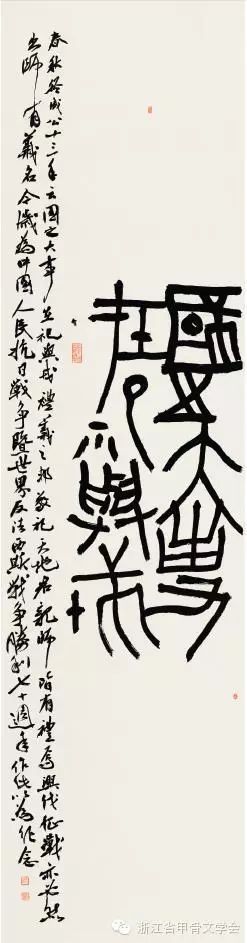 國之大事
在祀與戎
春秋成公十三年云國之大事在祀與戎禮義之邦敬祀天地君親師皆有禮焉興伐征戰亦必然
出師有義名今歲為中國人民抗日戰爭暨世界反法西斯戰爭勝利七十週年作此以為紀念
浙江省甲骨文学会